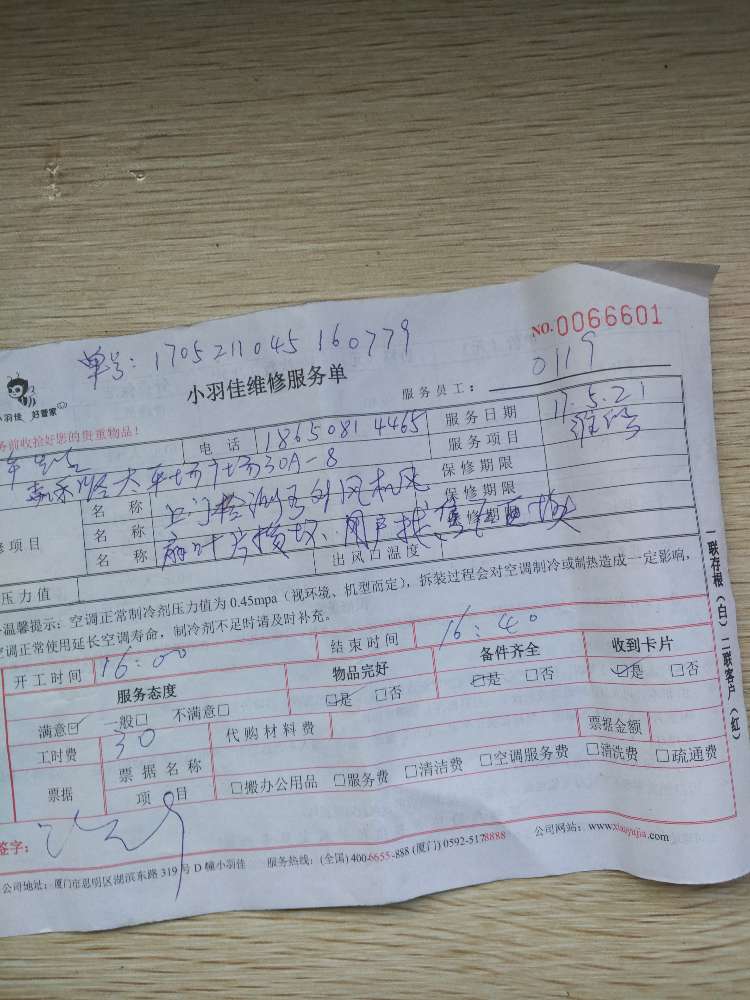 NO.0066601
单号: 1705211045160779
小羽佳维修服务单
服务员工: 0119
小羽佳 好管家
务前收拾好您的贵重物品!
电 话 18650814465 服务日期 17.5.21
服务项目 维修
太平 广场30A-8 保修期限
名 称 上门检测 外风机风 保修期限
修项目
名 称 扇叶片损坏、用户 保修期限
名 称
压力值 出风口温度
温馨提示: 空调正常制冷剂压力值为 0.45mpa (视环境、机型而定), 拆装过程会对空调制冷或制热造成一定影响,
空调正常使用延长空调寿命, 制冷剂不足时请及时补充。
开工时间 16:00 结束时间 16:40
服务态度 物品完好 备件齐全 收到卡片
满意☑ 一般□ 不满意□ ☑是 □否 ☑是 □否 ☑是 □否
工时费 30 代购材料费
票据 票据名称 票据金额
项 目 □搬办公用品 □服务费 □清洁费 □空调服务费 □清洗费 □疏通费
签字:
公司地址: 厦门市思明区湖滨东路 319 号 D 幢小羽佳 服务热线: (全国) 400-6655-888 (厦门) 0592-5178888 公司网站: www.xiaoyujia.com
一联存根(白) 二联客户(红)